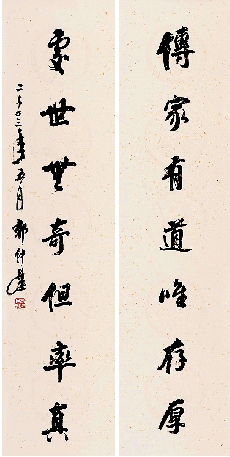 傳家有道唯存厚
處世無奇但率真
二〇〇三年五月